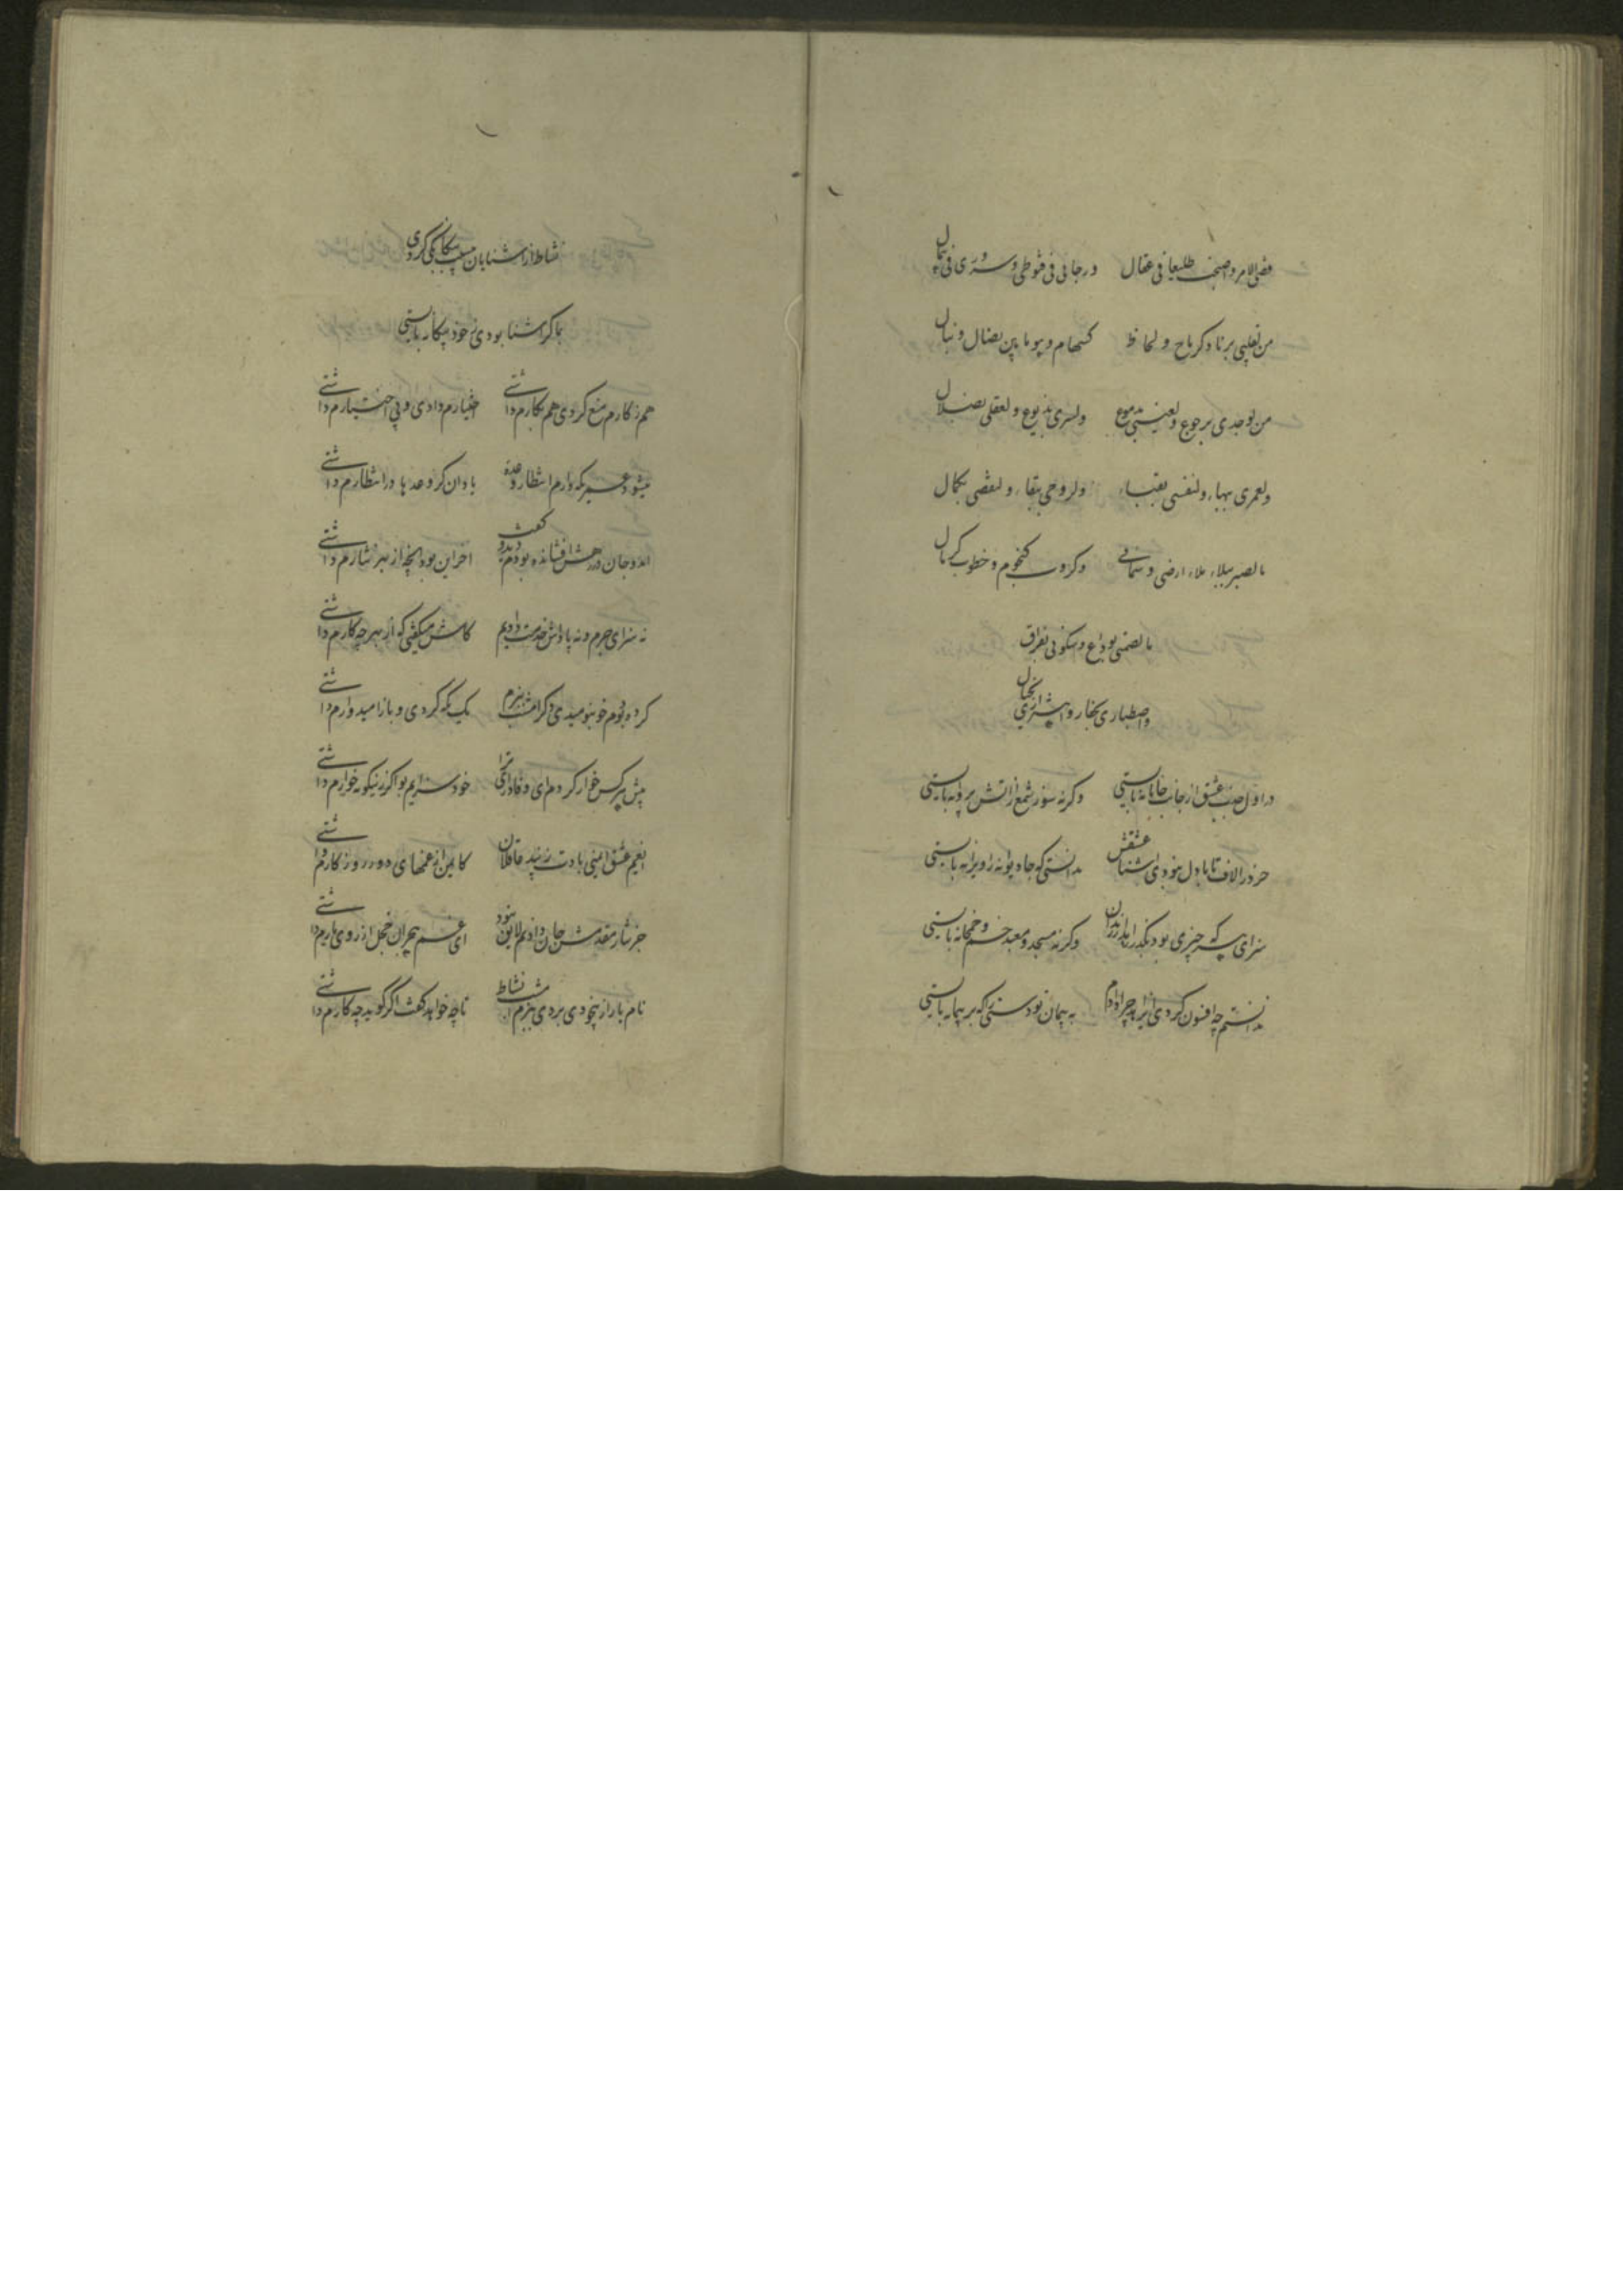 قضی الامر و اصبحت طلیعا فی عقال ورجائی فی قنوطی وسروری فی
من لقلبی برناد کرماح و لحاظ کسهام و پویا بین نصال و نبال
من لوجدی برجوع ولعینی بدموع ولسری بذیوع ولعقلی بضلال
ولعمری بهباء ولنفسی بقباء ولروحی بقاء ولنقصی بکمال
بالصبر ببلاء ملاء ارضی و سمائی وکروب کنجوم و خطوب کرمال
ما لضمنی بوداع و سکونی بفراق
واصطباری بخار و
در اول جذب عشق از جانب جانانه بایستی وکرنه سوز شمع از اتش پروانه بایستی
خرد را لاف تا با دل نبودی اشنا عشقش ندانستی که جا دیوانه را ویرانه بایستی
سزای هر که چیزی بود نگذارد وکرنه مسجد و معبد خم و خمخانه بایستی
ندانستم چه افسون کردی ای زاهد چرا دادم به پیمان تو دستی را که بر پیمانه بایستی
نشاط از اشنایان بیگانگی کردی
بما گر اشنا بودی ز خود بیگانه بایستی
هم ز کارم منع کردی هم بکارم داشتی اختیارم دادی و بی اختیارم داشتی
میشود عمریکه دارم انتظار وعده یا دان کز وعدها در انتظارم داشتی
امد و جان در رهش افشانده بودم دید و گفت اخر این بود انچه از بهر نثارم داشتی
نه سزای جرم و نه پاداش خدمت دادیم کاش میگفتی که از بهر چه کارم داشتی
کرده بودم خو بنومیدی دگر امشب ببزم یک نگه کردی و باز امیدوارم داشتی
پیش هر کس خوار کردم ای وفاداری ترا خود سزایم بود اگر زینگونه خوارم داشتی
ای غم عشق ایمنی بادت ز پند عاقلان کایمن از غمهای دور روزگارم داشتی
جز نثار مقدمش جان دادنم لایق نبود ای غم هجران خجل از روی یارم داشتی
نام یار از بیخودی بردی ببزم امشب نشاط تا چه خواهد گفت اگر گوید چه کارم داشتی